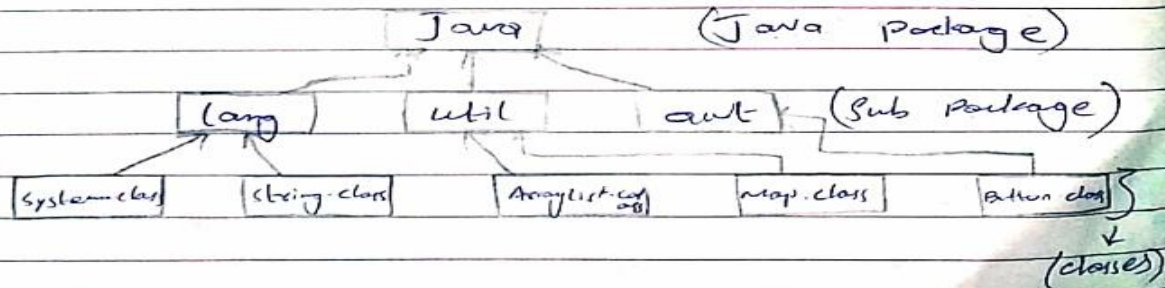 Java (Java Package)
lang util awt (Sub Package)
System.class String.class ArrayList.class Map.class Button.class
(classes)